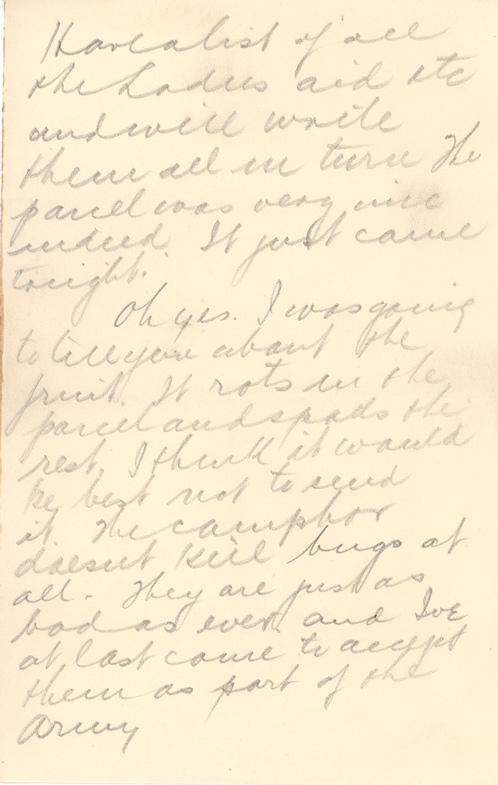 I have a list of all
the Ladies aid etc
and will write
them all in turn The
parcel was very nice
indeed. It just came
tonight.
Oh yes. I was going
to tell you about the
fruit. It rots in the
parcel and spoils the
rest. I think it would
be best not to send
it. The camphor
doesnt kill bugs at
all. They are just as
bad as ever and Ive
at last come to accept
them as part of the
Army